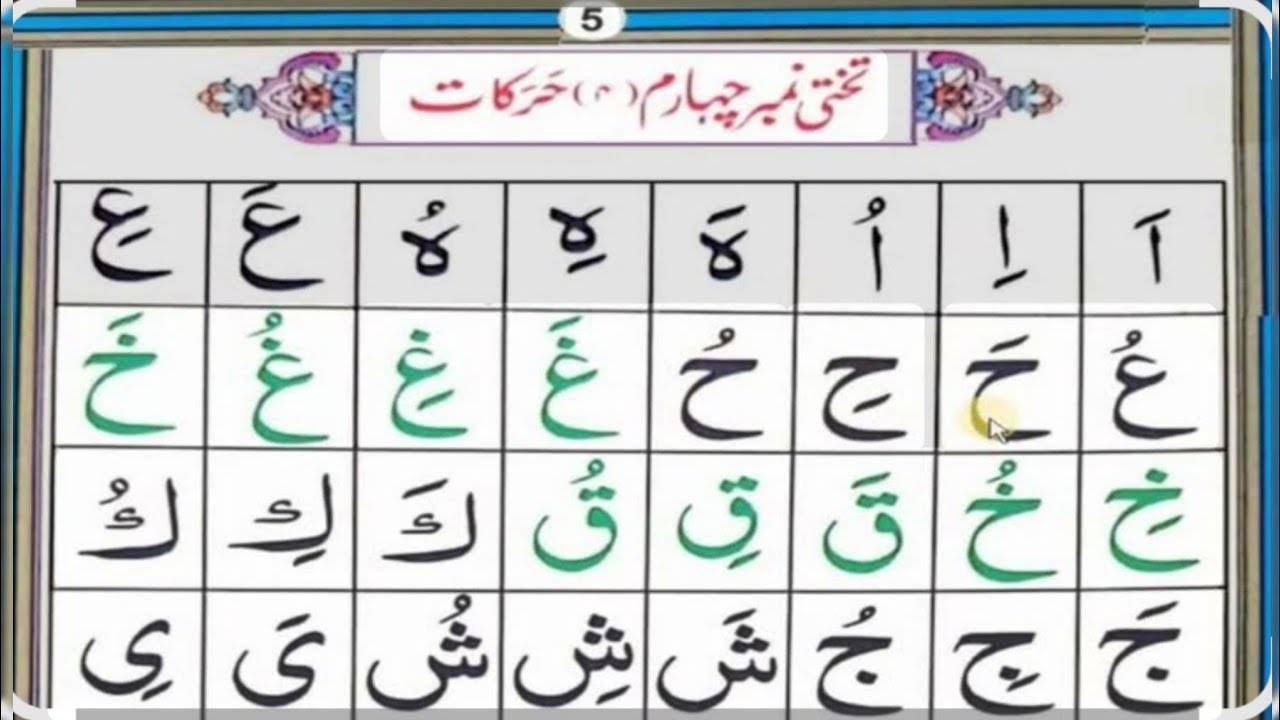 5
تختی نمبر چہارم (۴) حَرَکات
اَ اِ اُ هَ هِ هُ عَ عِ
عُ حَ حِ حُ غَ غِ غُ خَ
خِ خُ قَ قِ قُ كَ كِ كُ
جَ جِ جُ شَ شِ شُ یَ یِ